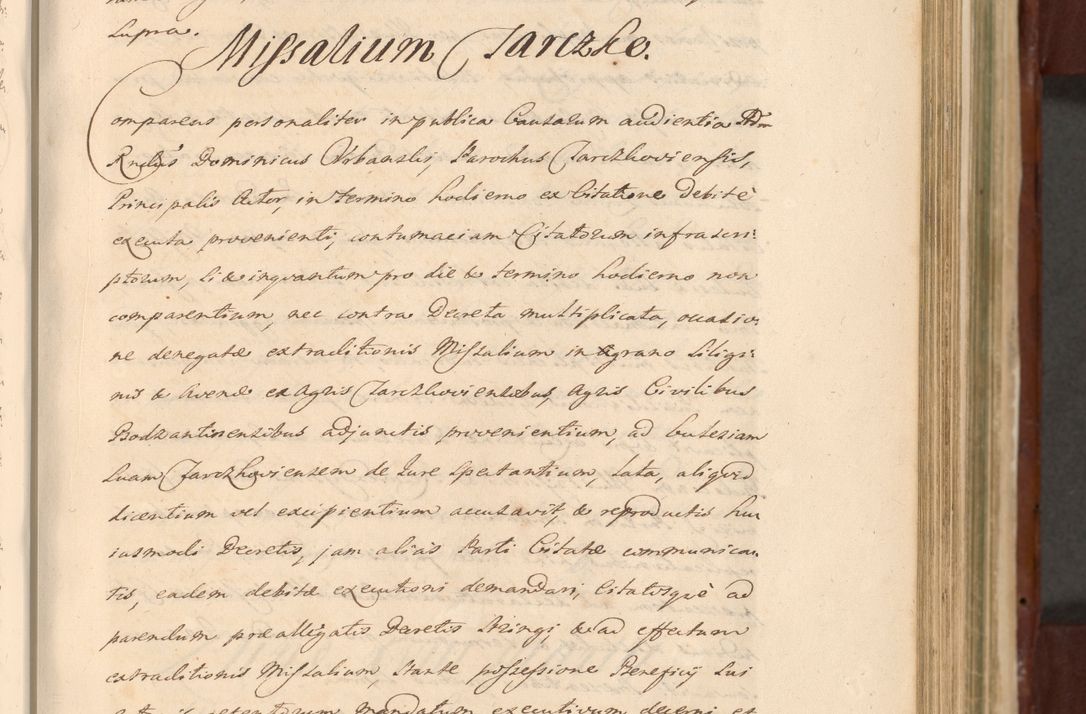 supra.
Missalium Tarczke.
Comparens personaliter in publica Causarum audientia Adm
Rndus Dominicus Urbanski, Parochus Tarczkoviensis,
Principalis Actor, in termino hodierno ex Citatione debitè
executa provenienti, contumaciam Citatorum infrascri:
ptorum, si & inqvantum pro die & termino hodierno non
comparentium, nec contra Decreta multiplicata, occasio:
ne denegatæ extraditionis Missalium in grano Siligi:
nis & Avenæ ex Agris Tarczkoviensibus, Agris Civilibus
Bodzantinensibus adjunctis provenientium, ad Ecclesiam
suam Tarczkoviensem de Jure spectantium, lata, aliqvid
dicentium vel excipientium accusavit, & reproductis hu
iusmodi Decretis, jam aliàs Parti Citatæ communica:
tis, eadem debitæ executioni demandari, Citatosqè ad
parendum præallegatis Decretis stringi, & ad effectum
extraditionis Missalium, stante possessione Beneficij sui
mandatum executivum decerni et